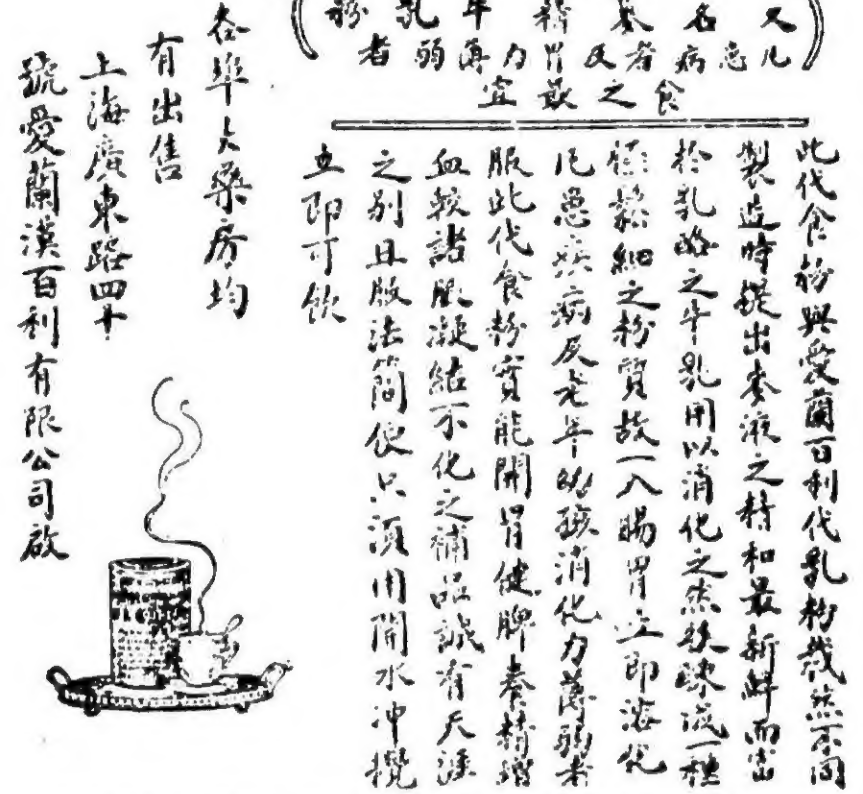 又名養精牛乳粉
凡患病者及胃力薄弱者
食之最宜
此代食粉與愛蘭百利代乳粉截然不同
製造時提出麥液之精和最新鮮而富
於乳酪之牛乳用以消化之然後煉成一種
極鬆細之粉質故一入腸胃立即溶化
凡患疾病及老年幼孩消化力薄弱者
服此代食粉實能開胃健脾養精增
血較諸服凝結不化之補品誠有天淵
之別且服法簡便只須用開水沖攪
立即可飲
各埠大藥房均
有出售
上海廣東路四十
號愛蘭漢百利有限公司啟